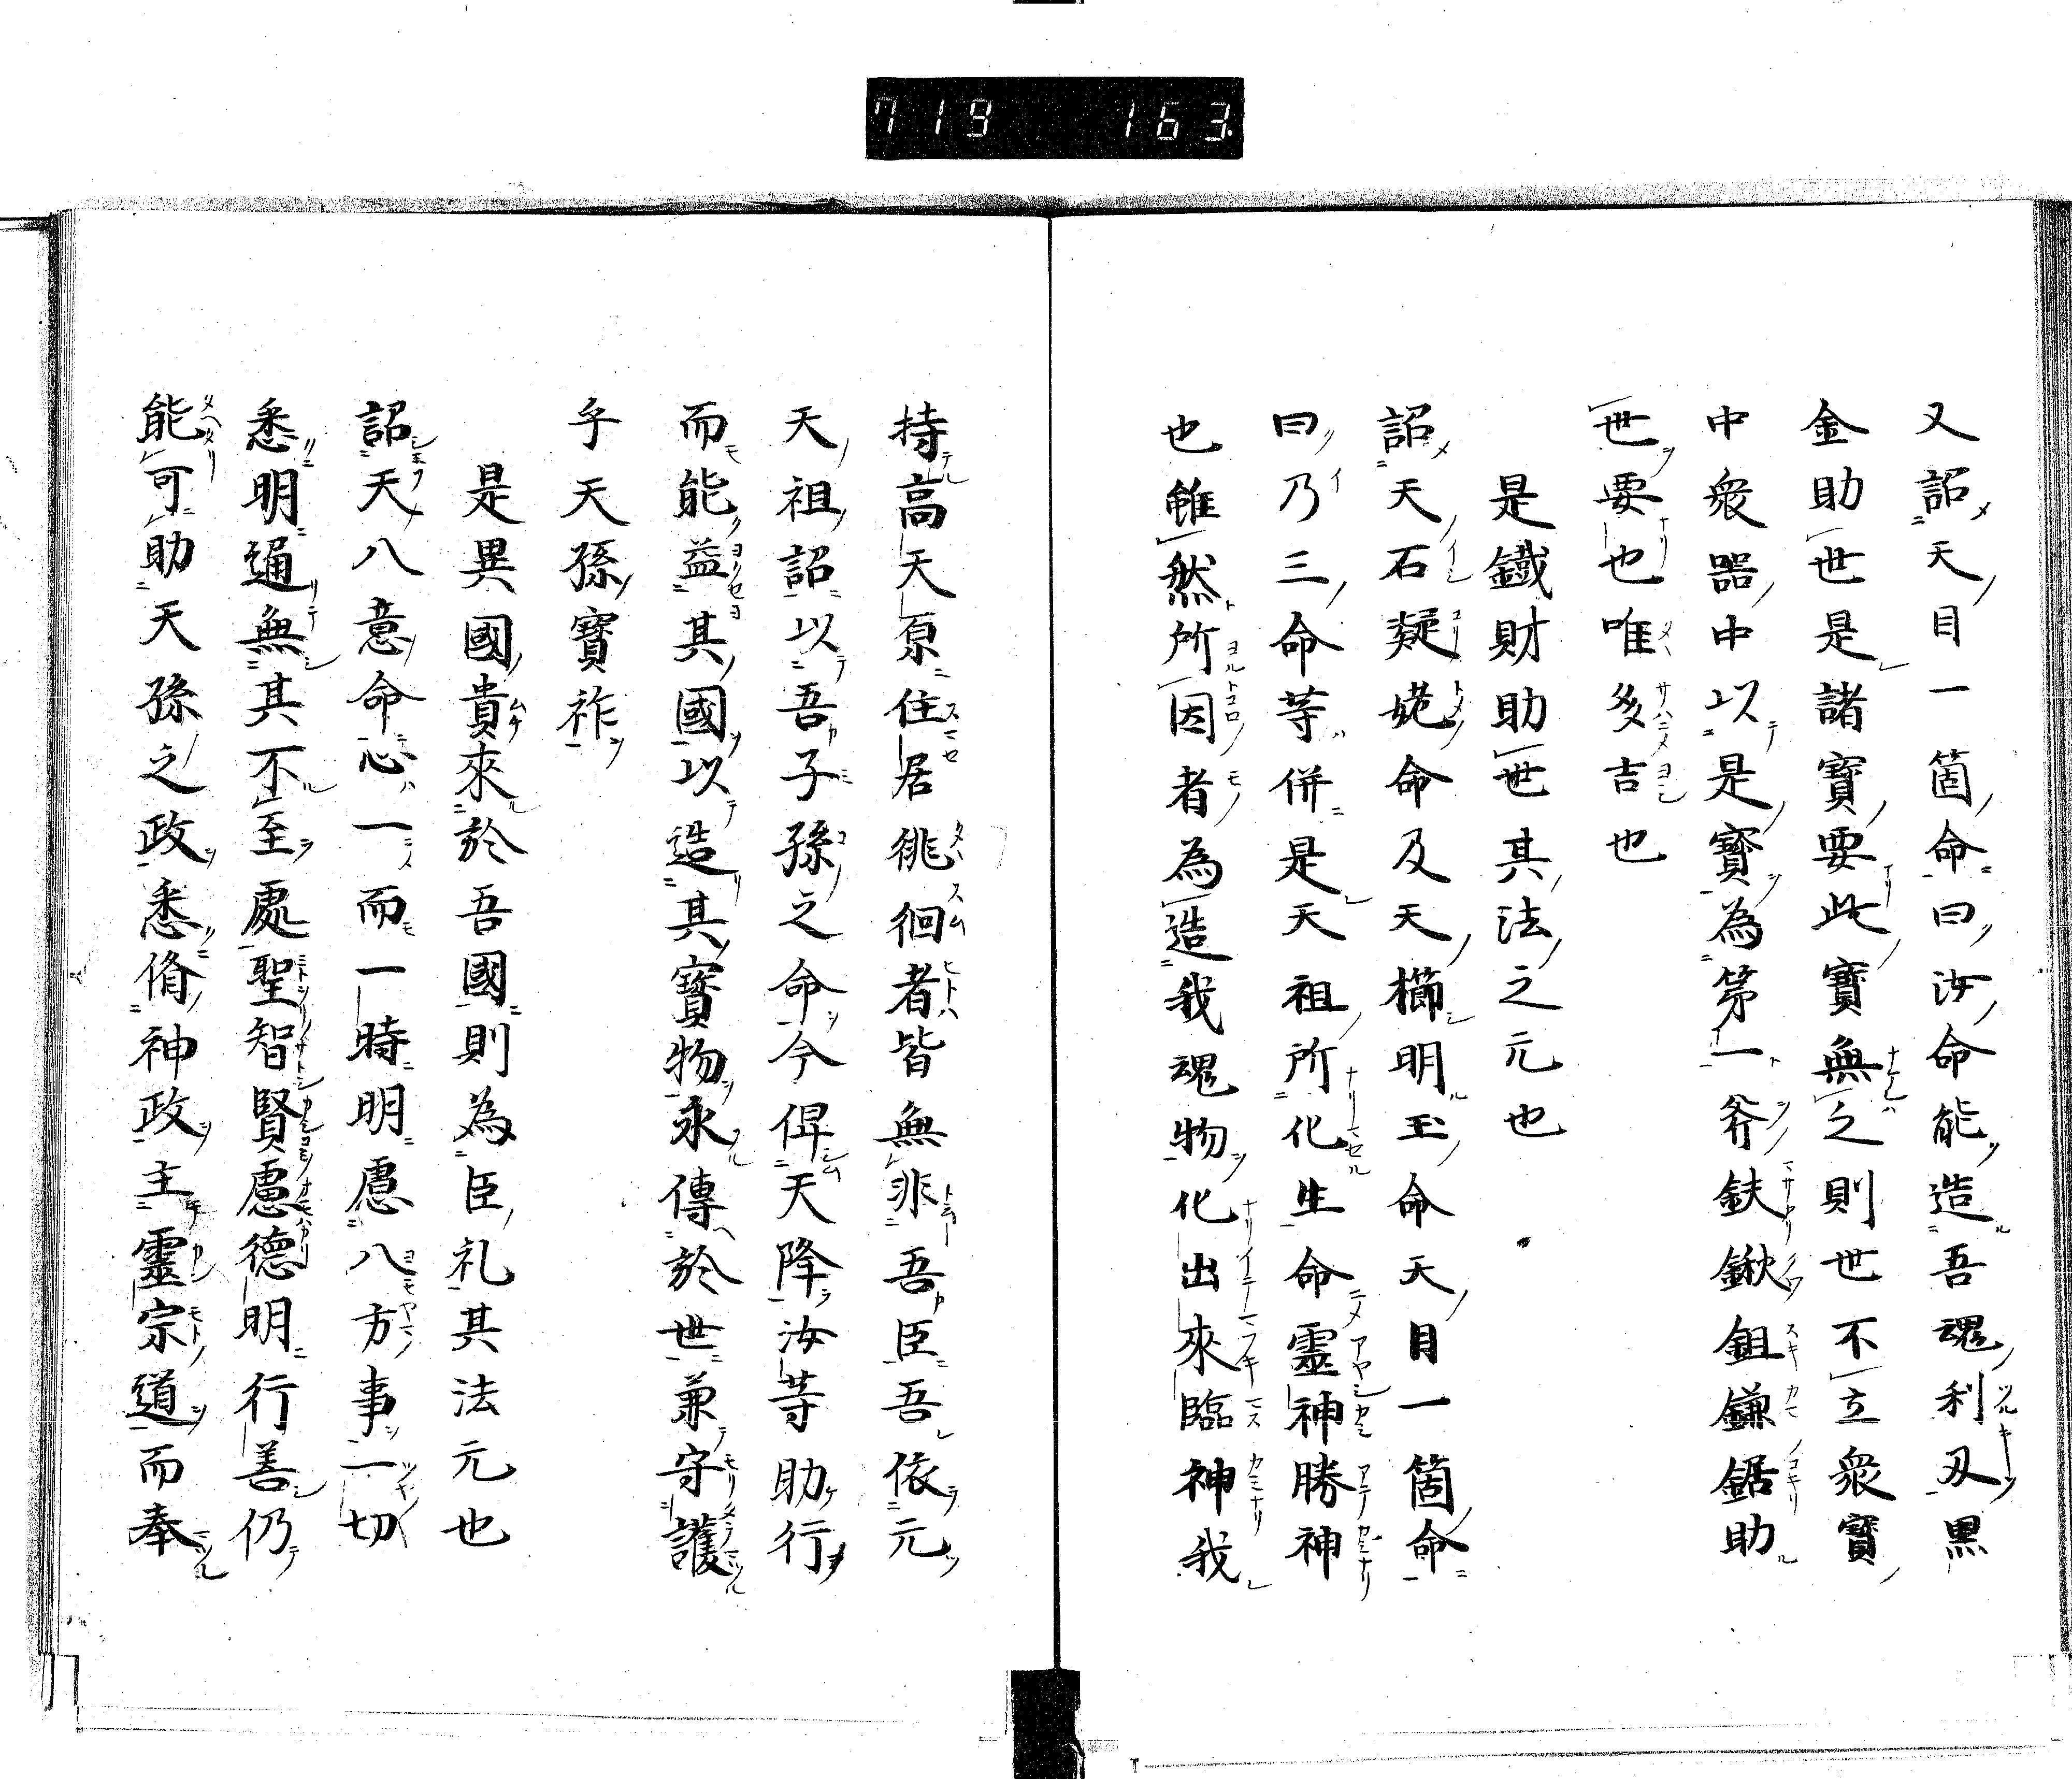 719 163
又詔天目一箇命曰汝命能造吾魂利刄黒
金助世是諸寶要此寶無之則世不立衆寶
中衆噐中以是寶為第一斧鈇鍬鉏鎌鋸助
世要也唯多吉也
是鐵財助世其法之元也
詔天石凝姥命及天櫛明玉命天目一箇命
曰乃三命等併是天祖所化生命靈神勝神
也雖然所因者為造我魂物化出來臨神我
持高天原住居徘徊者皆無非吾臣吾依元
天祖詔以吾子孫之命今俾天降汝等助行
而能益其國以造其寶物永傳於世兼守護
乎天孫寶祚
是異國貴來於吾國則為臣礼其法元也
詔天八意命心一而一時明慮八方事一切
悉明通無其不至處聖智賢慮德明行善仍
能可助天孫之政悉脩神政主靈宗道而奉